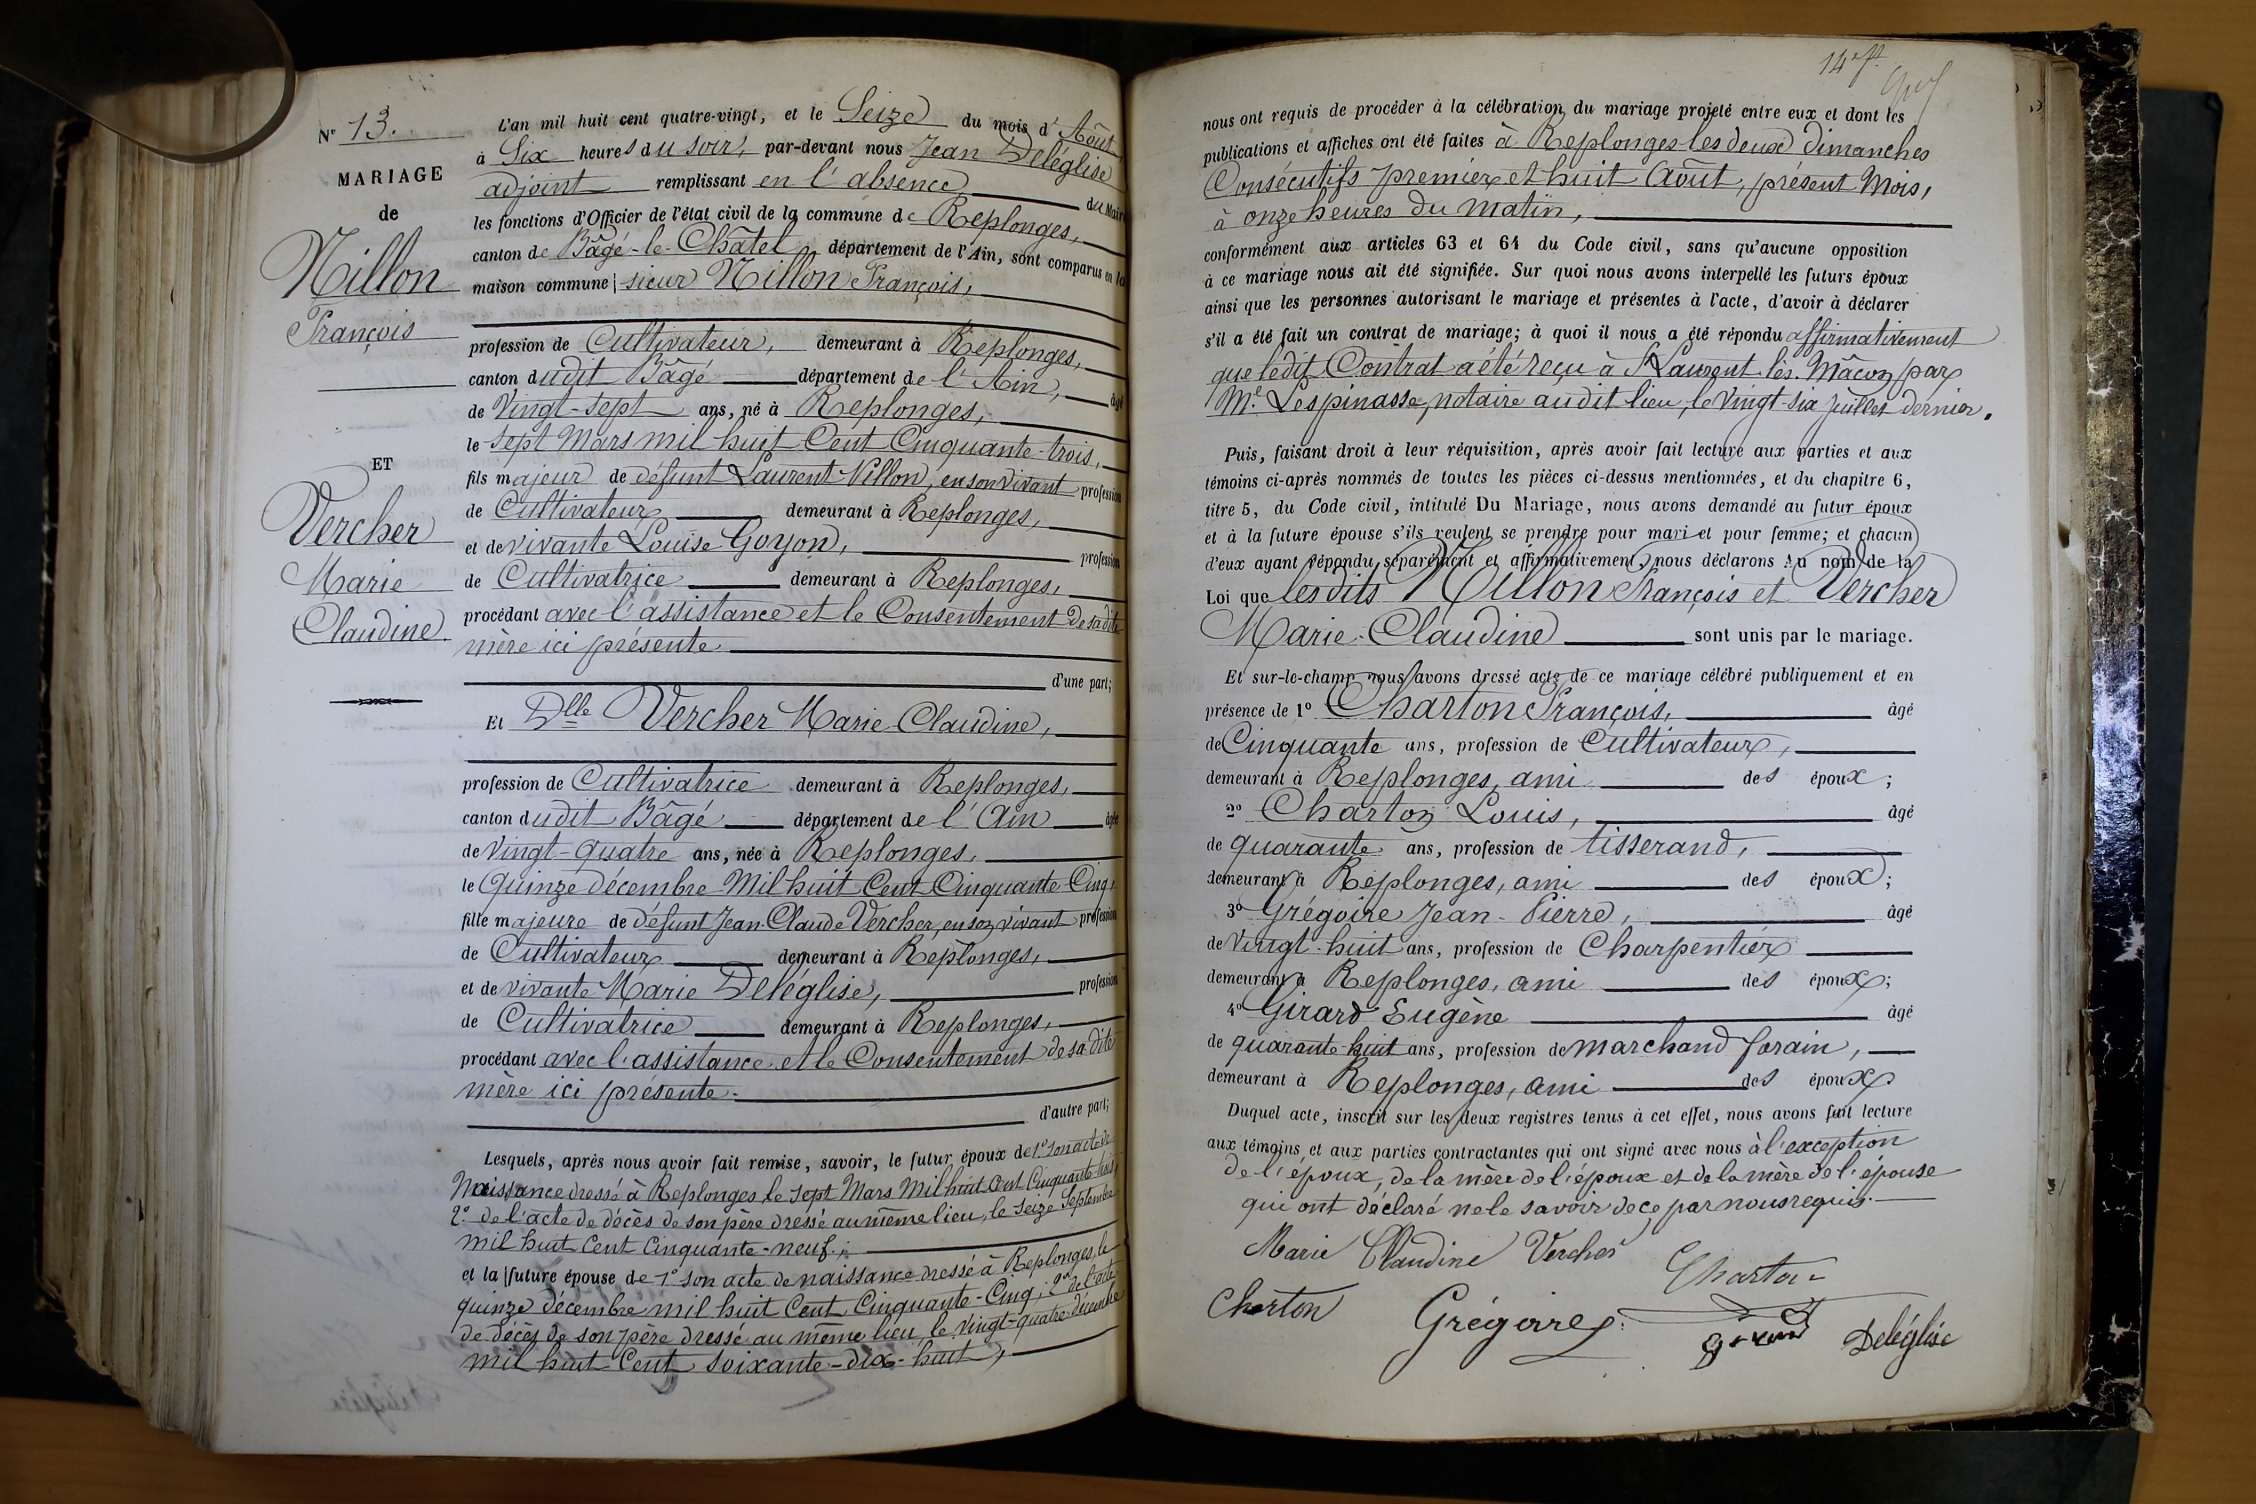 N° 13.
MARIAGE
de
Nillon
François
ET
Vercher
Marie
Claudine.
L'an mil huit cent quatre-vingt, et le Seize du mois d'Août
à Six heures du soir, par-devant nous Jean Deléglise
adjoint remplissant en l'absence du Maire
les fonctions d'Officier de l'état civil de la commune de Replonges,
canton de Bâgé-le-Châtel, département de l'Ain, sont comparus en la
maison commune sieur Nillon François,
profession de Cultivateur, demeurant à Replonges,
canton dudit Bâgé département de l'Ain, âgé
de Vingt-sept ans, né à Replonges,
le sept Mars mil huit Cent Cinquante-trois,
fils majeur de défunt Laurent Nillon, en son vivant profession
de Cultivateur demeurant à Replonges,
et de vivante Louise Goyon, profession
de Cultivatrice demeurant à Replonges,
procédant avec l'assistance et le Consentement de sa dite
mère ici présente
d'une part;
Et Dlle Vercher Marie-Claudine,
profession de Cultivatrice demeurant à Replonges,
canton dudit Bâgé département de l'Ain âgée
de Vingt-quatre ans, née à Replonges,
le quinze décembre Mil huit Cent Cinquante-Cinq,
fille majeure de défunt Jean-Claude Vercher, en son vivant profession
de Cultivateur demeurant à Replonges,
et de vivante Marie Deléglise, profession
de Cultivatrice demeurant à Replonges,
procédant avec l'assistance et le Consentement de sa dite
mère ici présente.
d'autre part;
Lesquels, après nous avoir fait remise, savoir, le futur époux de 1° son acte de
Naissance dressé à Replonges le sept Mars Mil huit Cent Cinquante-trois
2° de l'acte de décès de son père dressé au même lieu, le seize Septembre
mil huit Cent Cinquante-neuf;
et la future épouse de 1° son acte de naissance dressé à Replonges, le
quinze décembre mil huit Cent Cinquante-Cinq; 2° de l'acte
de décès de son père dressé au même lieu, le vingt-quatre décembre
mil huit Cent soixante-dix-huit,
14
nous ont requis de procéder à la célébration du mariage projeté entre eux et dont les
publications et affiches ont été faites à Replonges les deux dimanches
Consécutifs premier et huit Août, présent Mois,
à onze heures du matin,
conformément aux articles 63 et 64 du Code civil, sans qu'aucune opposition
à ce mariage nous ait été signifiée. Sur quoi nous avons interpellé les futurs époux
ainsi que les personnes autorisant le mariage et présentes à l'acte, d'avoir à déclarer
s'il a été fait un contrat de mariage; à quoi il nous a été répondu affirmativement
que ledit Contrat a été reçu à St Laurent lès Mâcon par
Me Lespinasse, notaire audit lieu, le vingt-six juillet dernier.
Puis, faisant droit à leur réquisition, après avoir fait lecture aux parties et aux
témoins ci-après nommés de toutes les pièces ci-dessus mentionnées, et du chapitre 6,
titre 5, du Code civil, intitulé Du Mariage, nous avons demandé au futur époux
et à la future épouse s'ils veulent se prendre pour mari et pour femme; et chacun
d'eux ayant répondu séparément et affirmativement, nous déclarons au nom de la
Loi que lesdits Nillon François et Vercher
Marie-Claudine sont unis par le mariage.
Et sur-le-champ nous avons dressé acte de ce mariage célébré publiquement et en
présence de 1° Charton François, âgé
de Cinquante ans, profession de Cultivateur,
demeurant à Replonges, ami des époux;
2° Charton Louis, âgé
de quarante ans, profession de tisserand,
demeurant à Replonges, ami des époux;
3° Grégoire Jean-Pierre, âgé
de Vingt-huit ans, profession de Charpentier
demeurant à Replonges, ami des époux;
4° Girard Eugène âgé
de quarante-huit ans, profession de marchand forain,
demeurant à Replonges, ami des époux
Duquel acte, inscrit sur les deux registres tenus à cet effet, nous avons fait lecture
aux témoins et aux parties contractantes qui ont signé avec nous à l'exception
de l'époux, de la mère de l'époux et de la mère de l'épouse
qui ont déclaré ne le savoir de ce par nous requis.
Marie Claudine Vercher Charton
Charton Grégoire Girard Deléglise